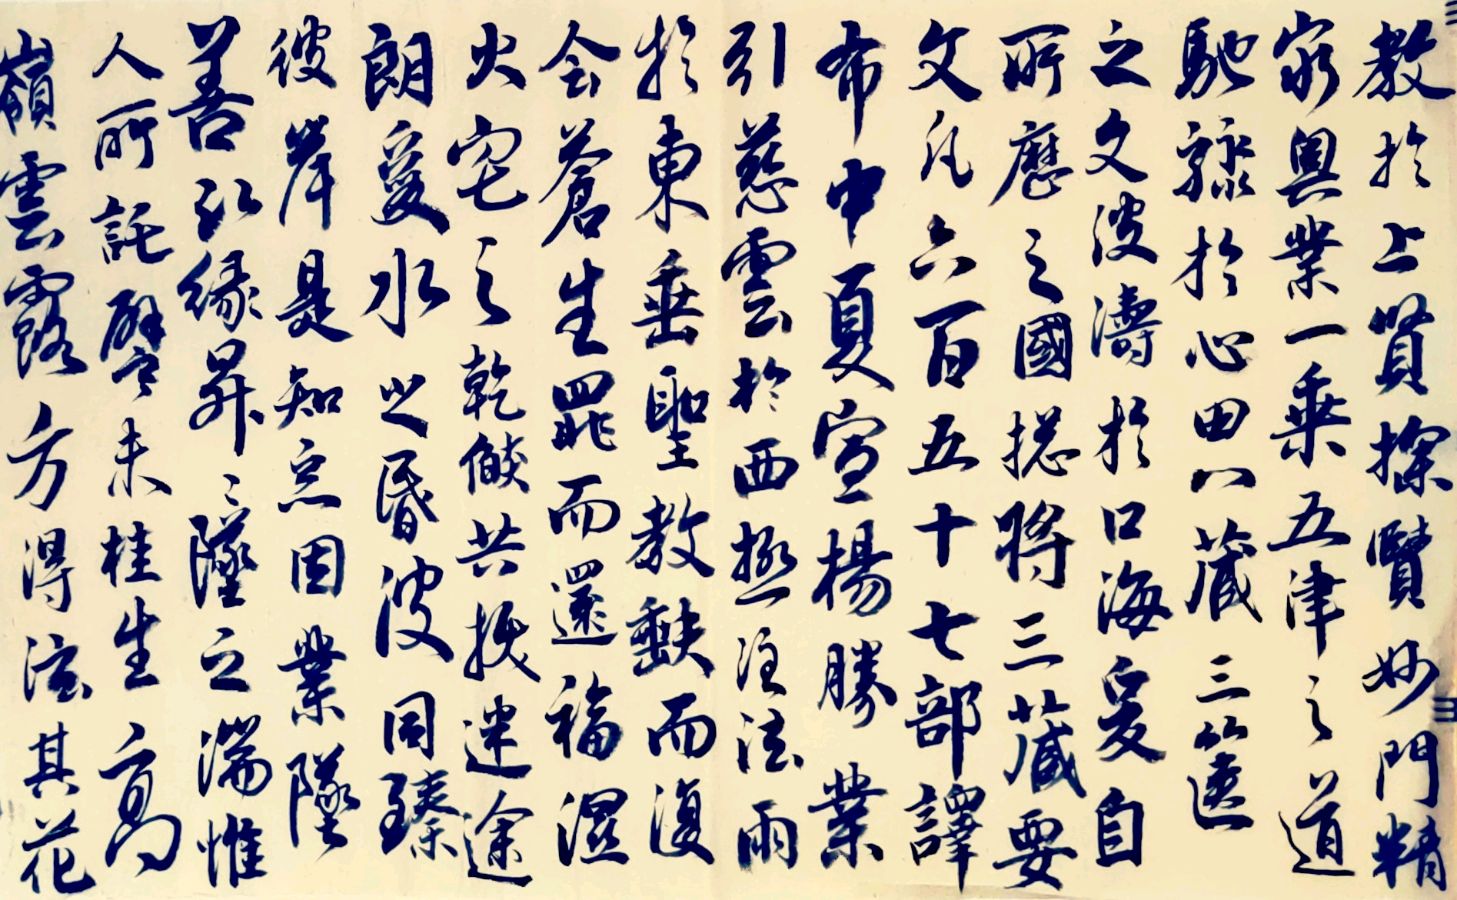 教於上賢探賾妙門精
窮奧業一乘五津之道
馳驟於心田八藏三篋
之文波濤於口海爰自
所歷之國捴將三藏要
文凡六百五十七部譯
布中夏宣揚勝業
引慈雲於西極注法雨
於東垂聖教缺而復
全蒼生罪而還福濕
火宅之乾燄共拔迷途
朗愛水之昏波同臻
彼岸是知惡因業墜
善以緣昇〻墜之湍惟
人所託譬夫桂生高
嶺雲露方得泫其花